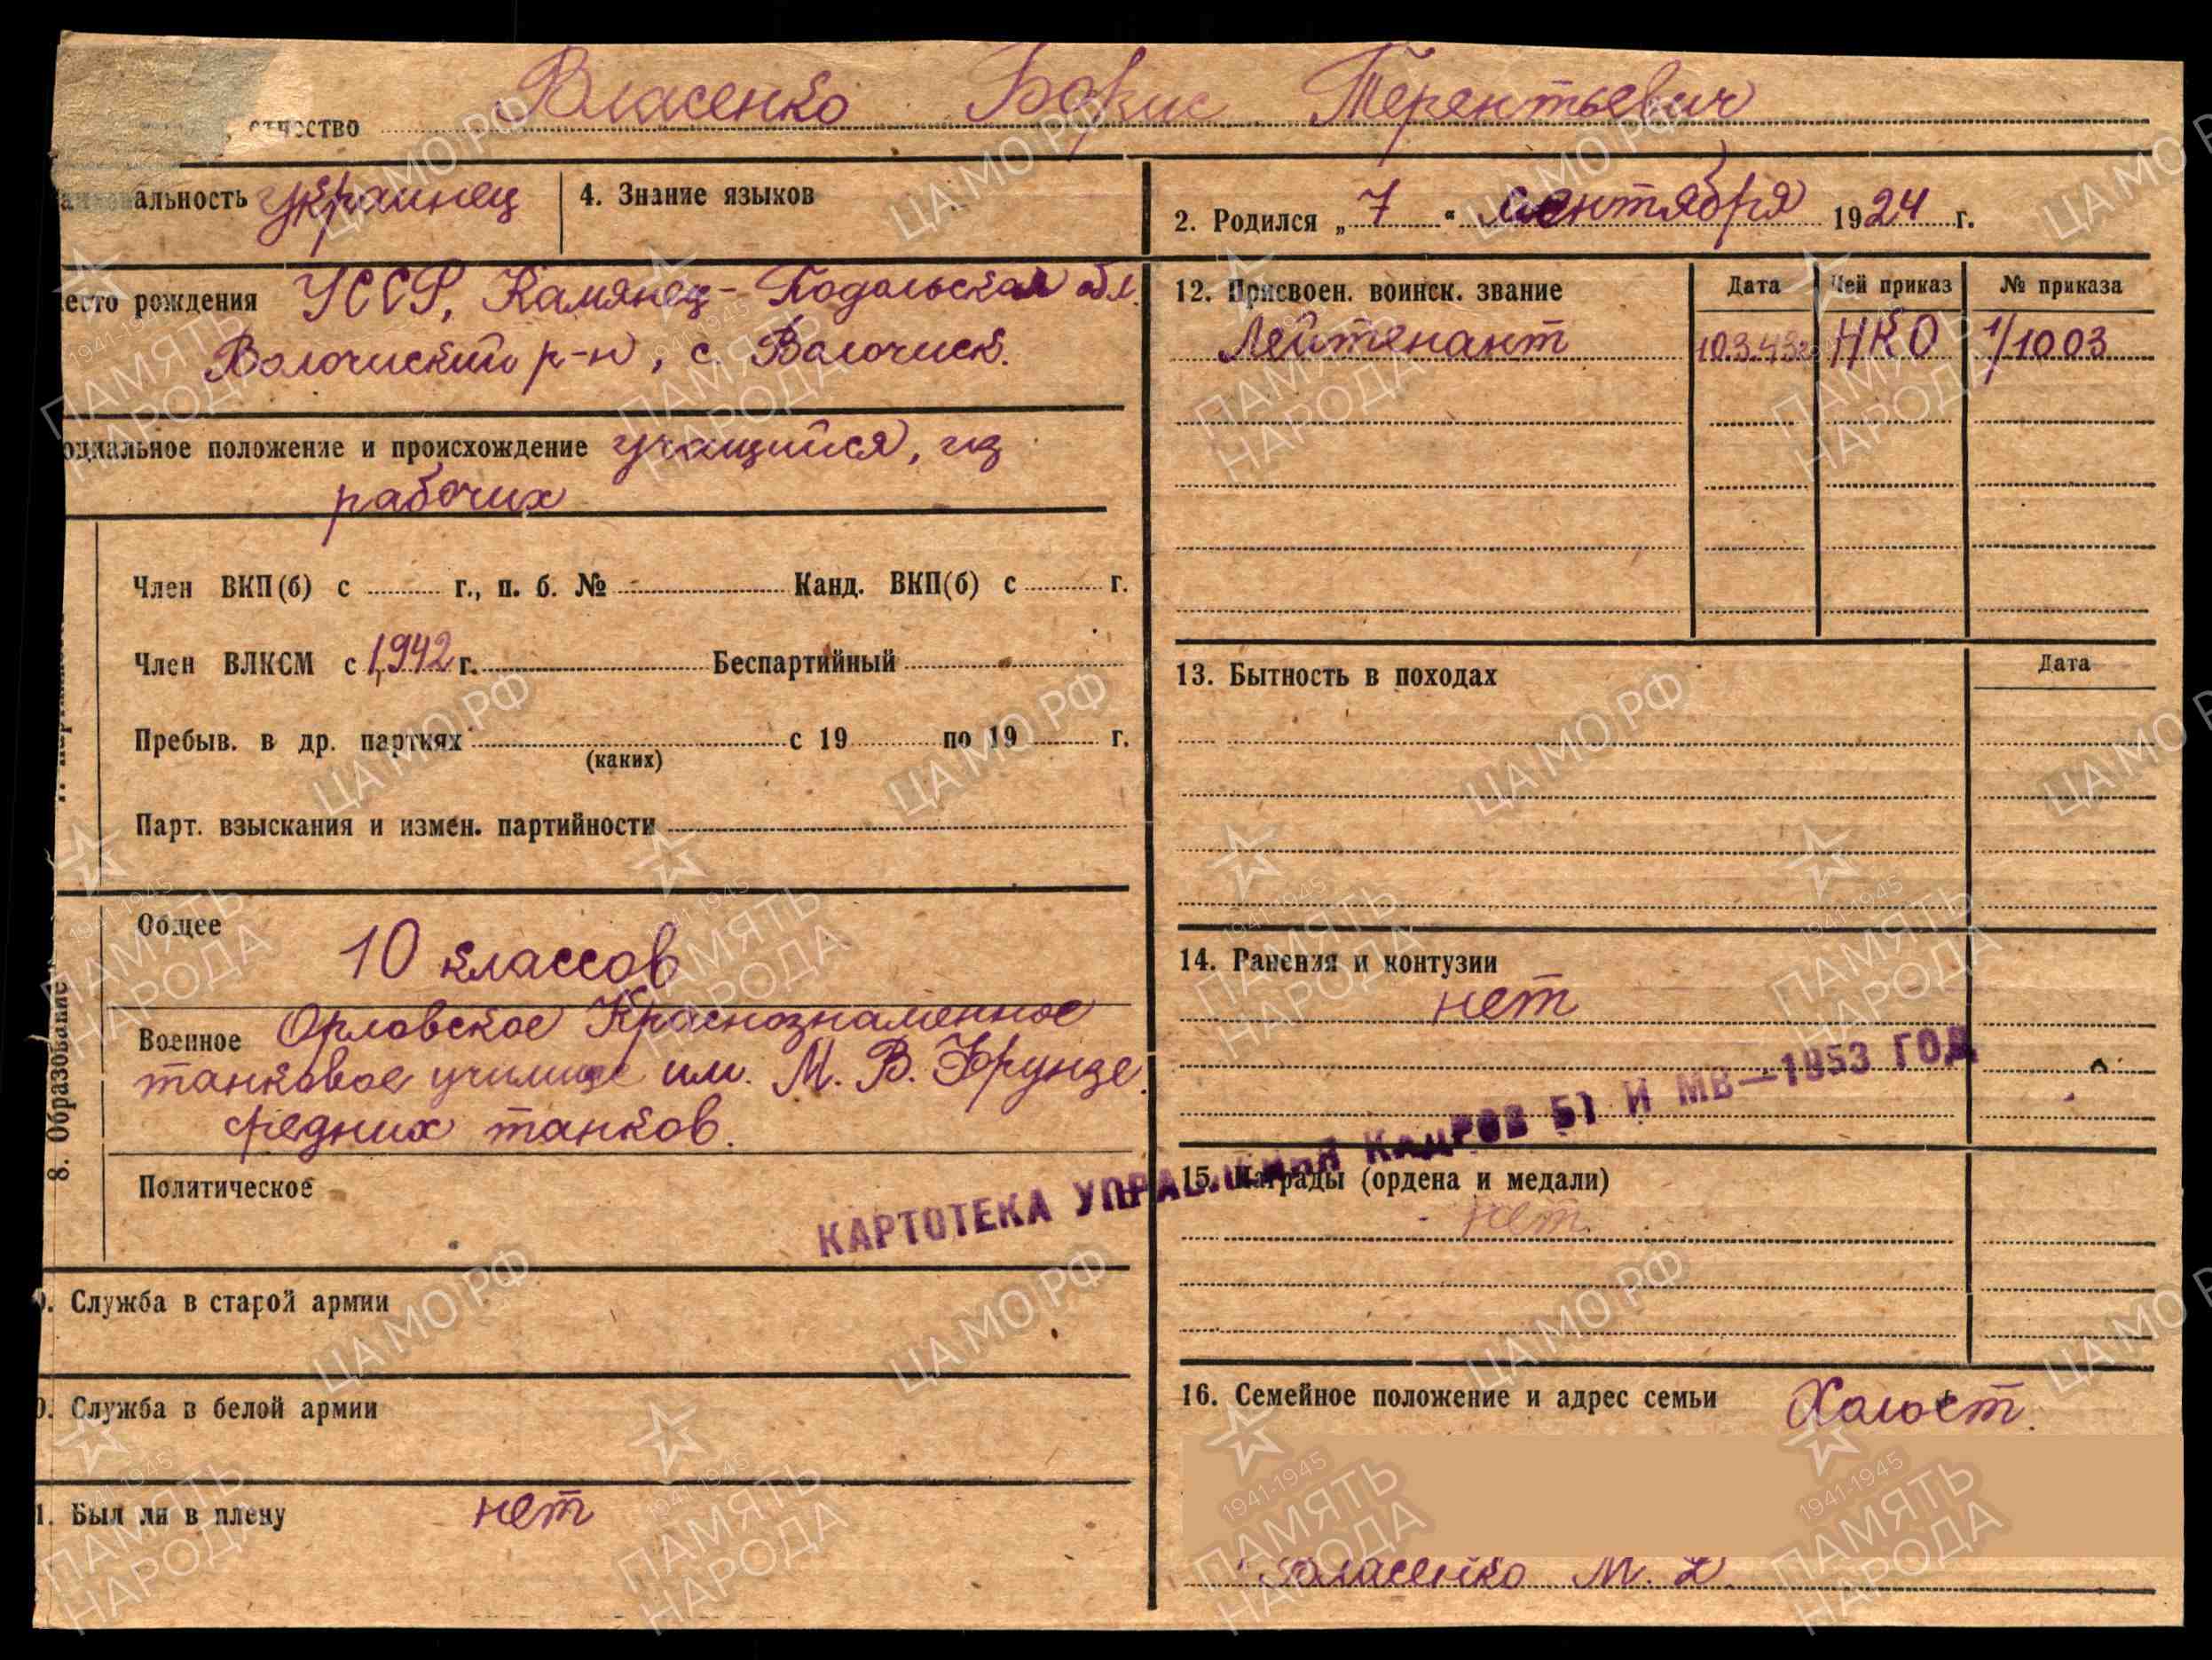 отчество Власенко Борис Терентьевич
альность украинец
4. Знание языков
2. Родился „ 7 “ сентября 1924 г.
есто рождения УССР, Камянец-Подольская обл.
Волочиский р-н, с. Волочиск.
оциальное положение и происхождение учащийся, из
рабочих
Член ВКП(б) с г., п. б. № Канд. ВКП(б) с г.
Член ВЛКСМ с 1942 г. Беспартийный
Пребыв. в др. партиях с 19 по 19 г.
(каких)
Парт. взыскания и измен. партийности
8. Образование
Общее 10 классов
Военное Орловское Краснознаменное
танковое училище им. М. В. Фрунзе.
средних танков.
Политическое
. Служба в старой армии
. Служба в белой армии
1. Был ли в плену нет
12. Присвоен. воинск. звание Дата Чей приказ № приказа
Лейтенант 10.3.43г НКО 1/1003
13. Бытность в походах Дата
14. Ранения и контузии
нет
КАРТОТЕКА УПРАВЛЕНИЯ КАДРОВ БТ И МВ—1953 ГОД
15. Награды (ордена и медали)
нет
16. Семейное положение и адрес семьи Холост.
Власенко М.
ЦА МО РФ
1941-1945
ПАМЯТЬ
НАРОДА